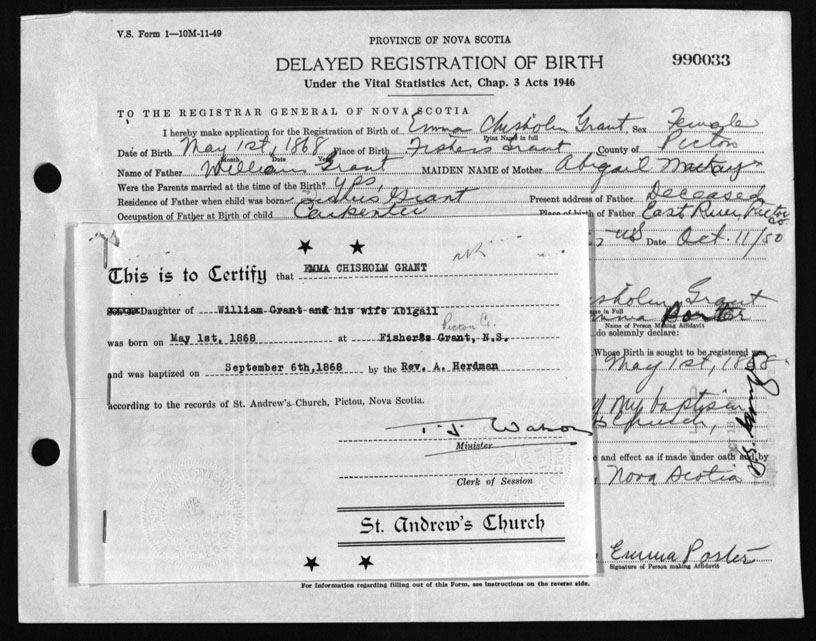 V.S. Form 1—10M-11-49
PROVINCE OF NOVA SCOTIA
DELAYED REGISTRATION OF BIRTH
990033
Under the Vital Statistics Act, Chap. 3 Acts 1946
TO THE REGISTRAR GENERAL OF NOVA SCOTIA
I hereby make application for the Registration of Birth of Emma Chisholm Grant, Sex Female
Print Name in full
Date of Birth May 1st, 1868 Place of Birth Fishers Grant County of Pictou
Month Date Year
Name of Father William Grant MAIDEN NAME of Mother Abigail Mackay
Were the Parents married at the time of the Birth? yes
Residence of Father when child was born Fishers Grant Present address of Father Deceased
Occupation of Father at Birth of child Carpenter Place of birth of Father East River, Pictou Co.
Date Oct. 11/50
This is to Certify that EMMA CHISHOLM GRANT
Daughter of William Grant and his wife Abigail
Pictou C.
was born on May 1st, 1868 at Fishers Grant, N.S.
and was baptized on September 6th,1868 by the Rev. A. Herdman
according to the records of St. Andrew's Church, Pictou, Nova Scotia.
T. J. Watson
Minister
Clerk of Session
St. Andrew's Church
sholm Grant
me in Full
mma Porter
Name of Person Making Affidavit
do solemnly declare:
Whose Birth is sought to be registered
May 1st, 1868
my baptism
Church,
e and effect as if made under oath and by
Nova Scotia
Emma Porter
Signature of Person making Affidavit
For Information regarding filling out of this Form, see instructions on the reverse side.